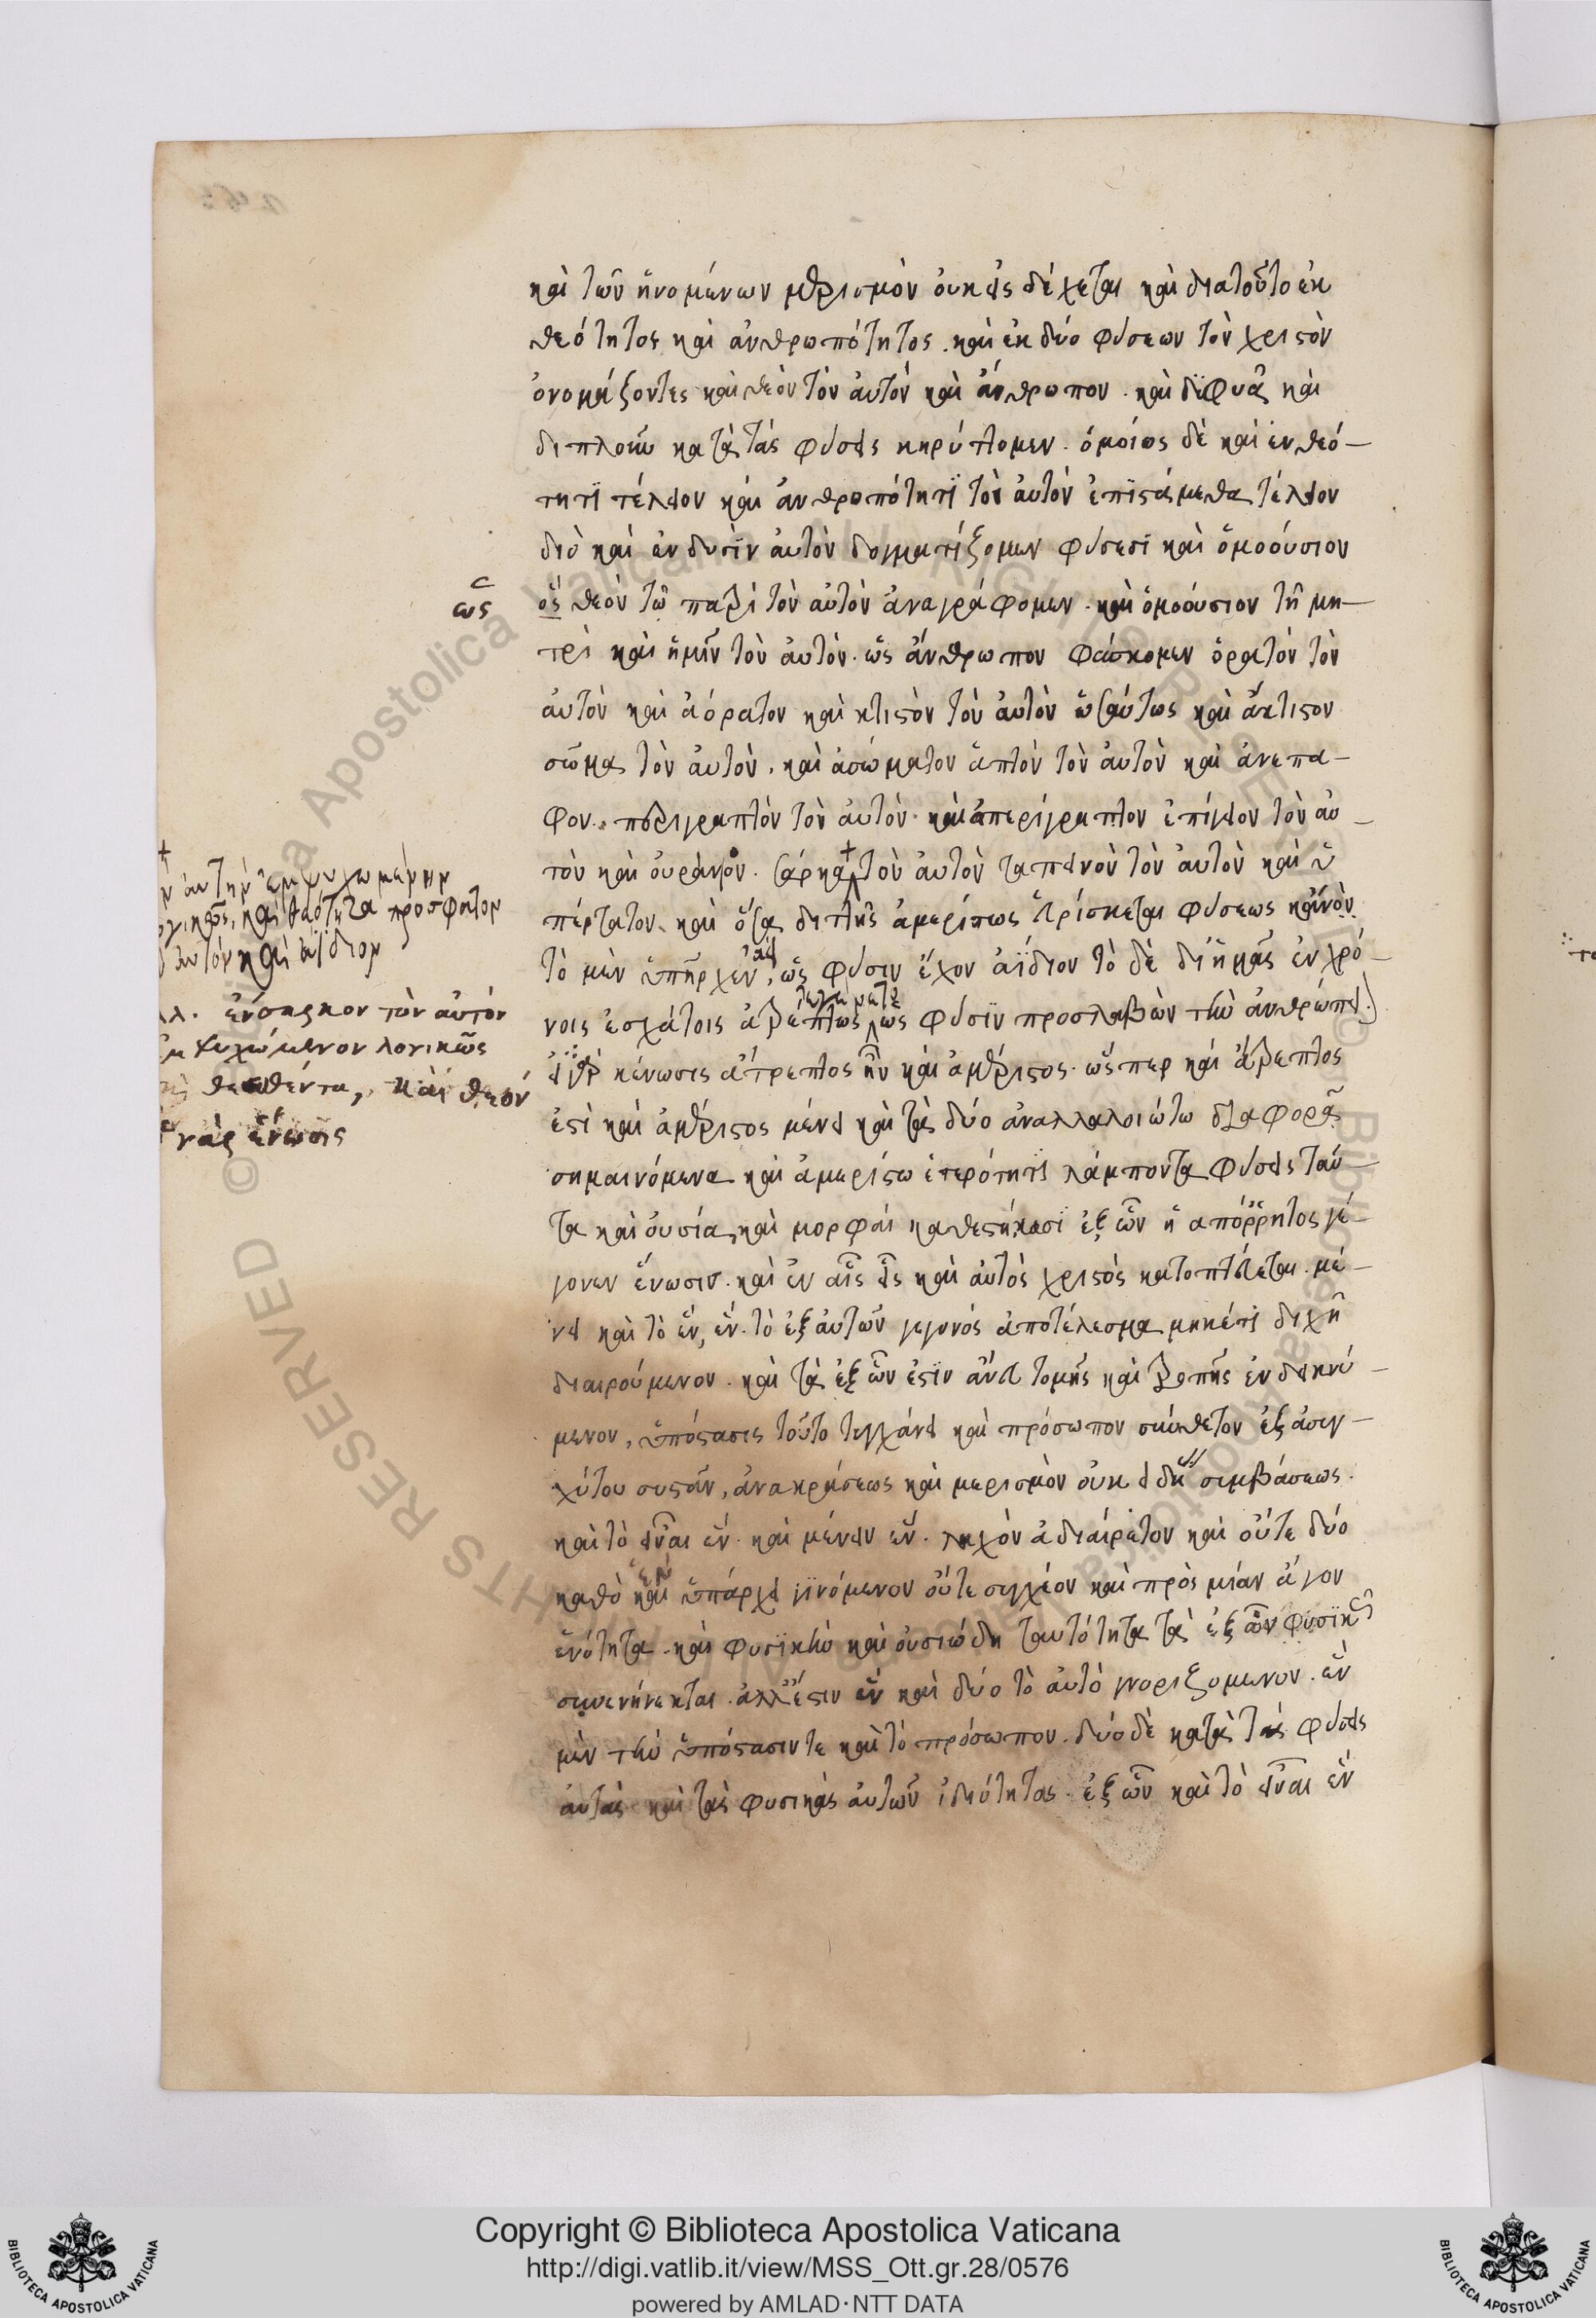 καὶ τῶν ἡνομένων μερισμὸν οὐκ εἰσδέχεται καὶ διατοῦτο ἐκ
θεότητος καὶ ἀνθρωπότητος. καὶ ἐκ δύο φύσεων τὸν χριστὸν
ὀνομάζοντες καὶ θεὸν τὸν αὐτὸν καὶ ἄνθρωπον. καὶ διφυᾶ καὶ
διπλοῦν κατὰ τὰς φύσεις κηρύττομεν. ὁμοίως δὲ καὶ ἐν θεό-
τητι τέλειον καὶ ἀνθρωπότητι τὸν αὐτὸν ἐπιστάμεθα τέλειον
διὸ καὶ ἐν δυσὶν αὐτὸν δογματίζομεν φύσεσι καὶ ὁμοούσιον
ὡς
ὃς θεὸν τῷ πατρὶ τὸν αὐτὸν ἀναγράφομεν. καὶ ὁμοούσιον τῇ μη-
τρὶ καὶ ἡμῖν τὸν αὐτὸν. ὡς ἄνθρωπον φάσκομεν ὁρατὸν τὸν
αὐτὸν καὶ ἀόρατον καὶ κτιστὸν τὸν αὐτὸν ὡσαύτως καὶ ἄκτιστον
σῶμα τὸν αὐτὸν. καὶ ἀσώματον ἁπτὸν τὸν αὐτὸν καὶ ἀνεπα-
φον. περιγραπτὸν τὸν αὐτὸν. καὶ ἀπερίγραπτον ἐπίγειον τὸν αὐ-
τὸν καὶ οὐράνιον. σάρκα τὸν αὐτὸν ταπεινὸν τὸν αὐτὸν καὶ ὑ
πέρτατον. καὶ ὅσα διπλῆς ἀμερίστως εὑρίσκεται φύσεως καινὸν
τὸ μὲν ὑπῆρχεν ἀεὶ, ὡς φύσιν ἔχον ἀΐδιον τὸ δὲ δι ἡμᾶς ἐν χρό-
νοις ἐσχάτοις ἀτρέπτως ὡς φύσιν προσλαβὼν τὴν ἀνθρώπει
εἰ γὰρ κένωσις ἄτρεπτος ἦν καὶ ἀμέριστος. ὥσπερ καὶ ἄτρεπτος
ἐστὶ καὶ ἀμέριστος μένει καὶ τὰ δύο ἀναλλαλοιώτω διαφορᾷ
σημαινόμενα καὶ ἀμερίστω ἑτερότητι λάμποντα φύσεις ταύ-
τα καὶ οὐσία, καὶ μορφαὶ καθεστήκασι ἐξ ὧν ἡ απόρρητος γέ-
γονεν ἕνωσις. καὶ ἐν αἷς εἷς καὶ αὐτὸς χριστὸς κατοπτεύεται. μέ-
νει καὶ τὸ ἓν, ἓν. τὸ ἐξ αὐτῶν γεγονὸς ἀποτέλεσμα μηκέτι διχῇ
διαιρούμενον. καὶ τὰ ἐξ ὧν ἐστὶν ἄνευ τομῆς καὶ τροπῆς ἐνδεικνύ-
μενον, ὑπόστασις τοῦτο τυγχάνει καὶ πρόσωπον σύνθετον ἐξ ἀσυγ-
χύτου συστᾶν, ἀνακράσεως καὶ μερισμὸν οὐκ εἰδυ συμβάσεως.
καὶ τὸ εἶναι ἓν. καὶ μένειν ἓν. λαχὸν ἀδιαίρετον καὶ οὔτε δύο
καθὸ καὶ ὑπάρχει γινόμενον οὔτε συγχέον καὶ πρὸς μίαν ἄγον
ἑνότητα. καὶ φυσικὴν καὶ οὐσιώδη ταυτότητα τὰ ἐξ ὧν φυσικῶς
συνενήνεκται. ἀλλ' ἔστιν ἓν καὶ δύο τὸ αὐτὸ γνοριζομενον. ἓν
μὲν τὴν ὑπόστασιν τε καὶ τὸ πρόσωπον. δύο δὲ κατὰ τὰς φύσεις
αὐτὰς καὶ τὰς φυσικὰς αὐτῶν ἰδιότητας. ἐξ ὧν καὶ τὸ εἶναι ἓν
αὐτὴν ἐμψυχωμένην
λογικῶς, καὶ θεότητα προσφατον
αὐτὸν καὶ ἀΐδιον
ἔνσαρκον τὸν αὐτὸν
ἐμψυχώμενον λογικῶς
θεωθέντα, καὶ θεὸν
γὰρ ἕνωσις
Copyright © Biblioteca Apostolica Vaticana
http://digi.vatlib.it/view/MSS_Ott.gr.28/0576
powered by AMLAD·NTT DATA